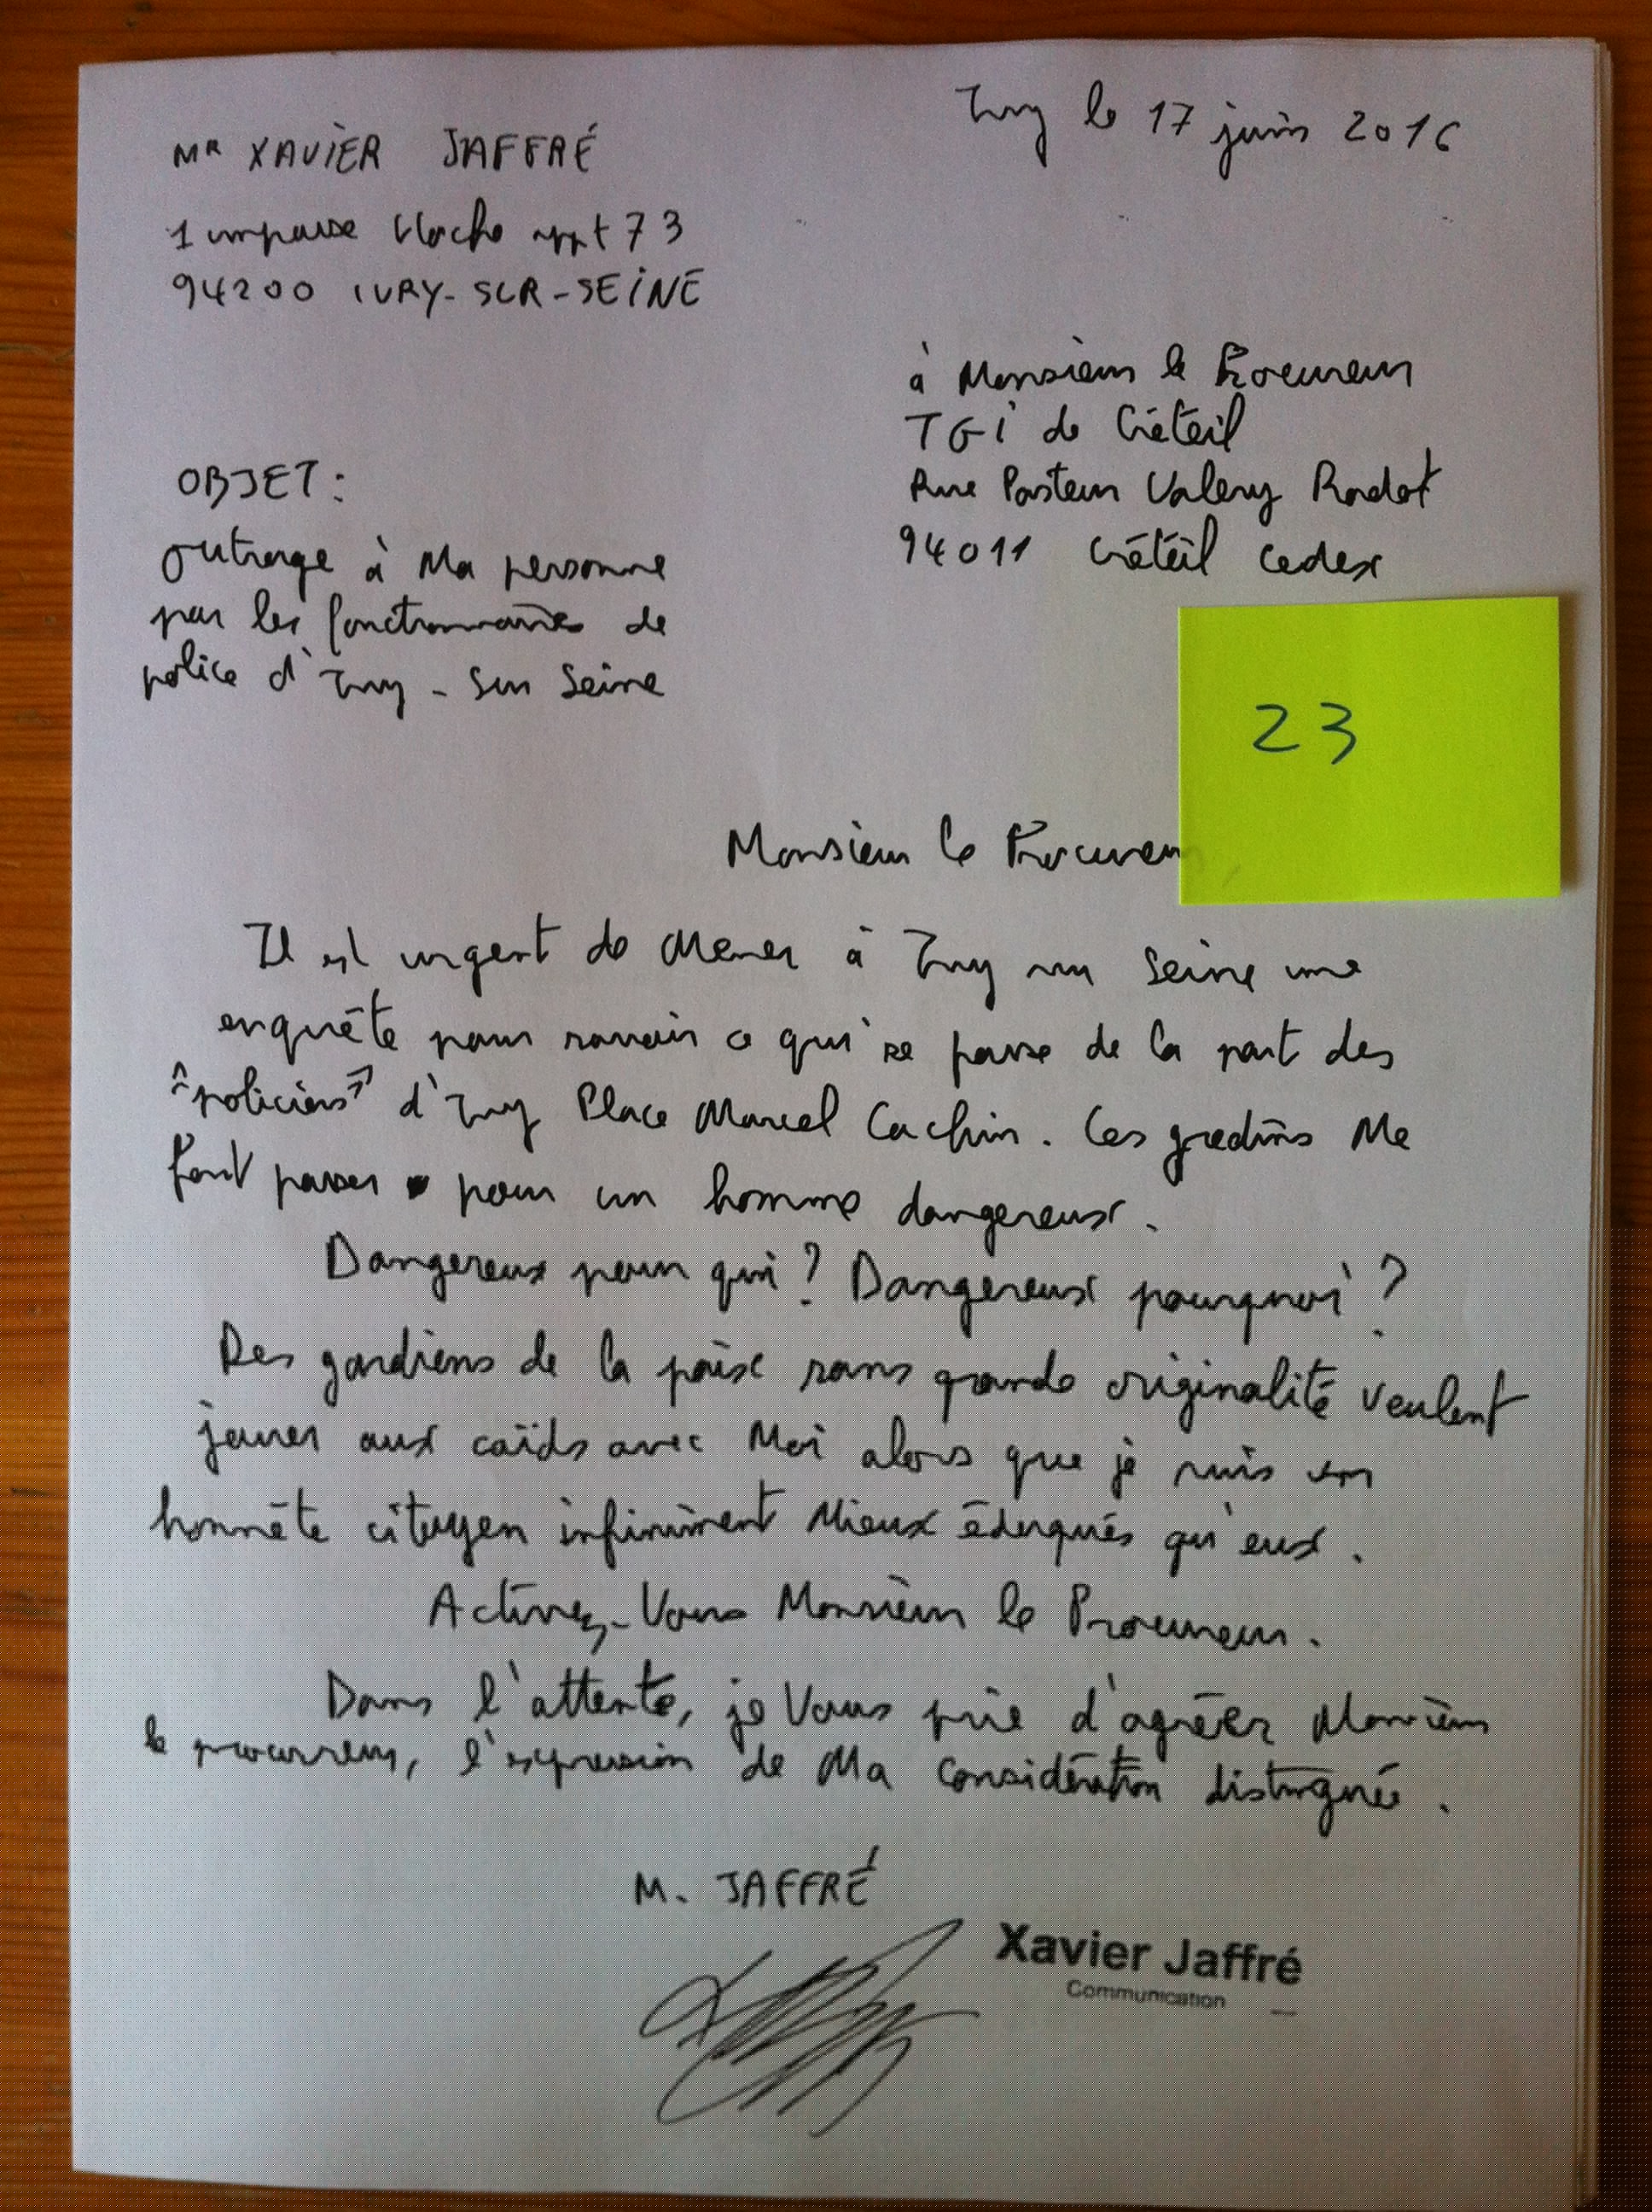 Ivry le 17 juin 2016
MR XAVIER JAFFRÉ
1 impasse Hoche appt 73
94200 IVRY-SUR-SEINE
à Monsieur le Procureur
TGI de Créteil
Rue Pasteur Valery Radot
94011 Créteil Cedex
OBJET :
outrage à Ma personne
par les fonctionnaires de
police d'Ivry - sur Seine
23
Monsieur le Procureur
Il est urgent de Mener à Ivry sur Seine une
enquête pour savoir ce qui se passe de la part des
"policiers" d'Ivry Place Marcel Cachin. Ces gredins Me
font passer pour un homme dangereux.
Dangereux pour qui ? Dangereux pourquoi ?
Des gardiens de la paix sans grande originalité veulent
jouer aux caïds avec Moi alors que je suis un
honnête citoyen infiniment Mieux éduqués qu'eux.
Activez-Vous Monsieur le Procureur.
Dans l'attente, je Vous prie d'agréer Monsieur
le procureur, l'expression de Ma Considération distinguée.
M. JAFFRÉ
Xavier Jaffré
Communication